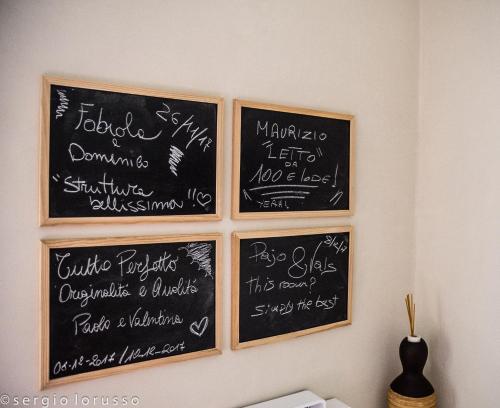 Fabiola
e
Domenico
26/11/17
"Struttura
bellissima"!!
MAURIZIO
"LETTO"
DA
100 E LODE!
Tutto Perfetto
Originalità e Qualità
Paolo e Valentina
08-12-2017/10-12-2017
Pajo &
this room?
Simply the best
©sergio lorusso